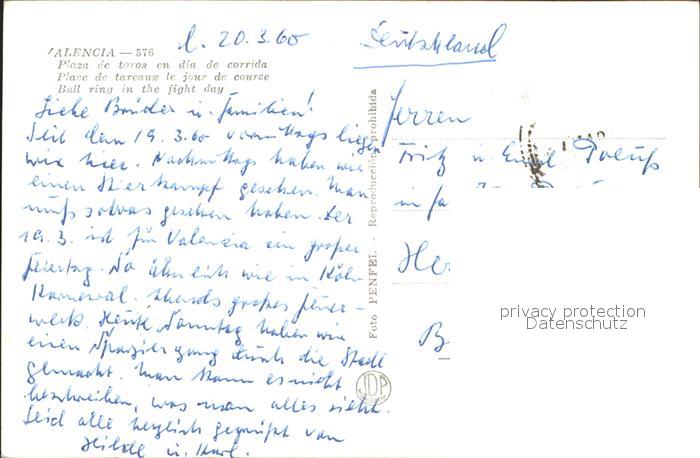 VALENCIA — 576
Plaza de toros en día de corrida
Place de tareaux le jour de course
Bull ring in the fight day
20.3.60
Liebe Brüder u. Familien!
Seit dem 19.3.60 vormittags liegen
wir hier. Nachmittags haben wir
einen Stierkampf gesehen. Man
muß sowas gesehen haben. Der
19.3. ist für Valencia ein großer
Feiertag. So ähnlich wie in Köln
Karneval. Abends großes Feuer-
werk. Heute, Sonntag haben wir
einen Spaziergang durch die Stadt
gemacht. Man kann es nicht
beschreiben, was man alles sieht.
Seid alle herzlich gegrüßt von
Hilde u. Karl.
Foto PENFEL. - Reproducción prohibida
JDP
Deutschland
Herren
Fritz u. Emil
in Fa
He
B
privacy protection
Datenschutz